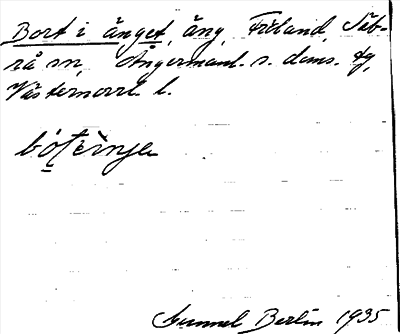 Bort i änget, äng, Fröland, Säb-
rå sn, Ångermanl. s. doms. fg,
Västernorrl. l.
Gunnel Berlin 1935